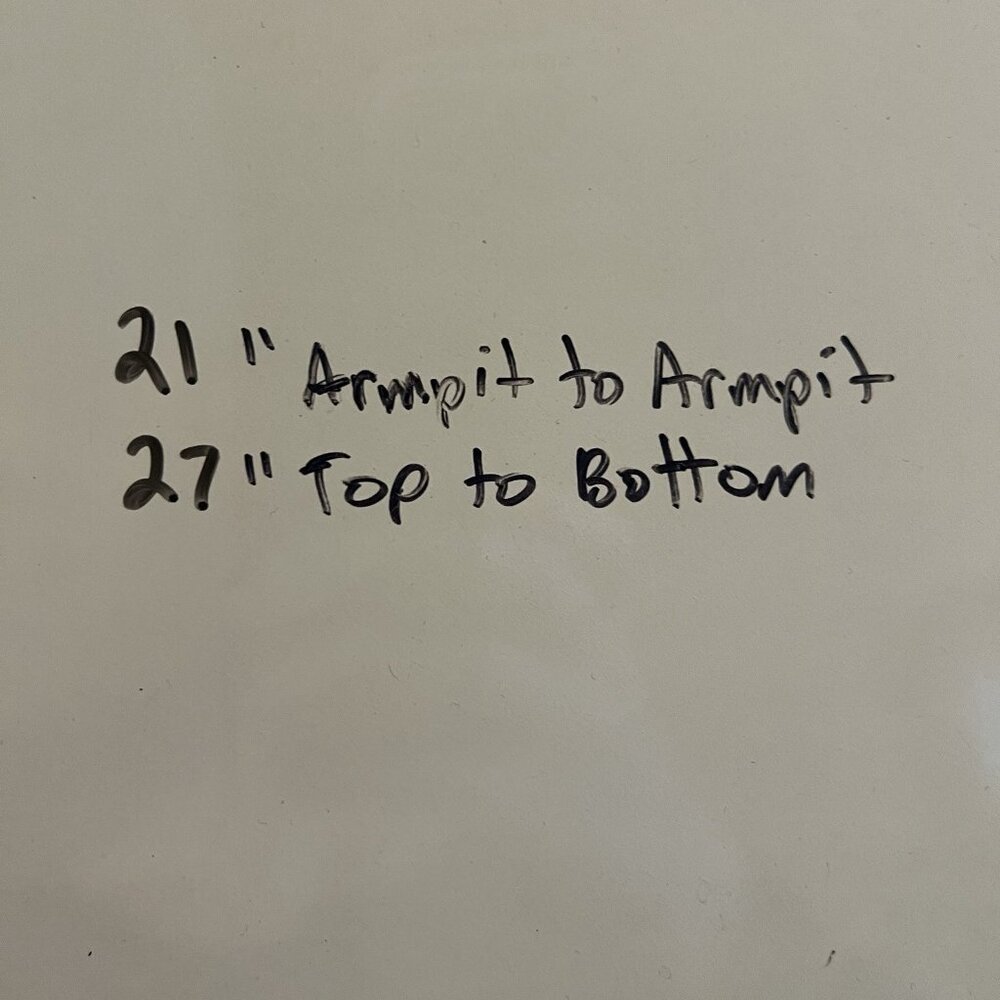 21" Armpit to Armpit
27" Top to Bottom